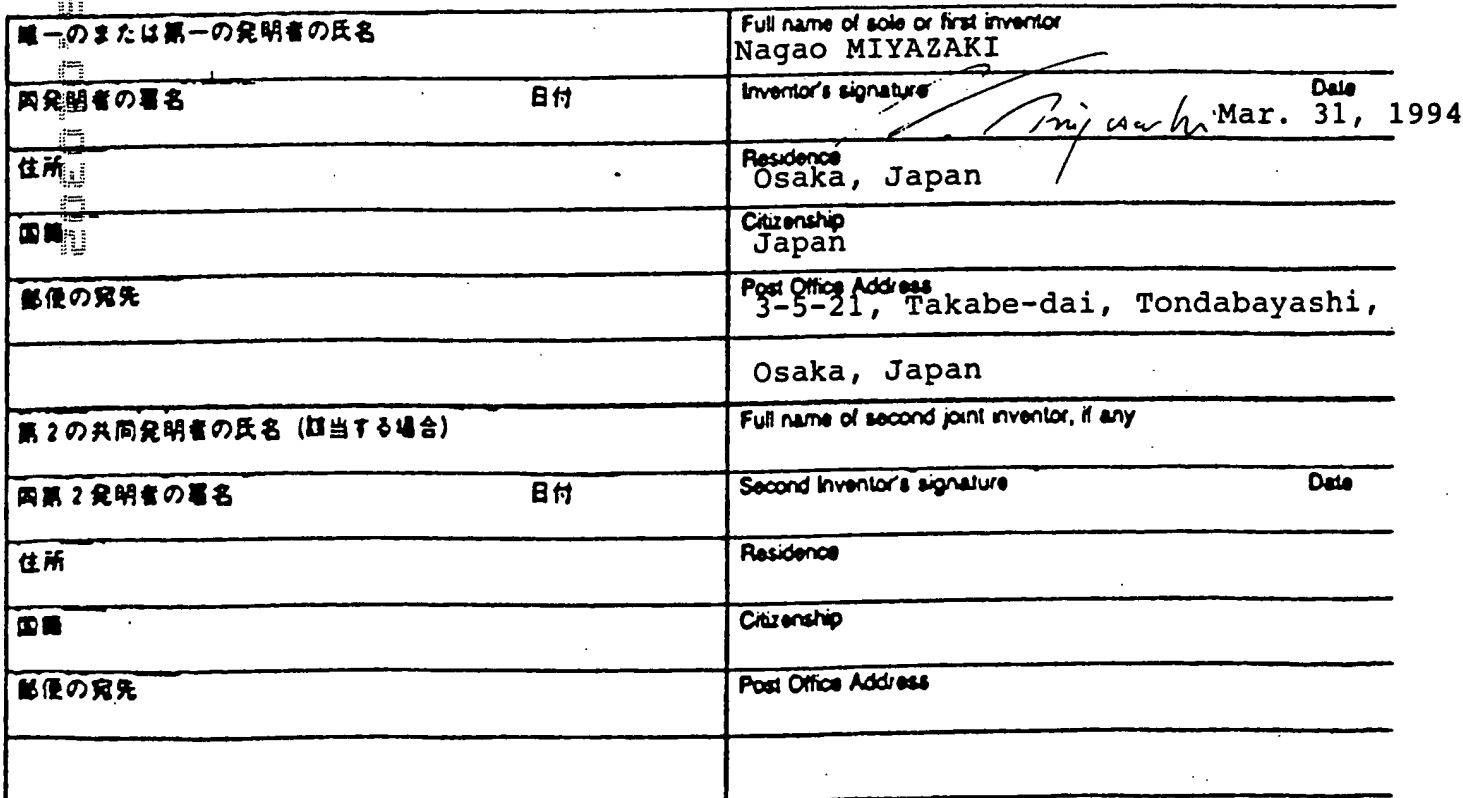 唯一のまたは第一の発明者の氏名
Full name of sole or first inventor
Nagao MIYAZAKI
同発明者の署名 日付
Inventor's signature Date
Miyazaki Mar. 31, 1994
住所
Residence
Osaka, Japan
国籍
Citizenship
Japan
郵便の宛先
Post Office Address
3-5-21, Takabe-dai, Tondabayashi,
Osaka, Japan
第2の共同発明者の氏名 (該当する場合)
Full name of second joint inventor, if any
同第2発明者の署名 日付
Second Inventor's signature Date
住所
Residence
国籍
Citizenship
郵便の宛先
Post Office Address